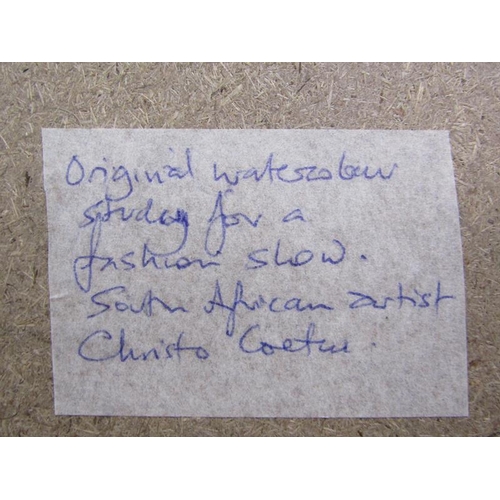 Original watercolour
study for a
fashion show.
South African artist
Christo Coetzee.